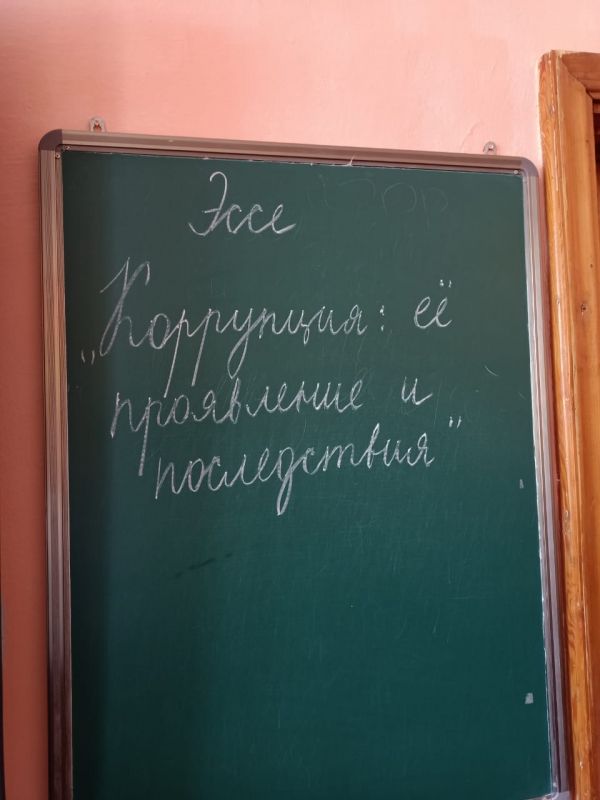 Эссе
„Коррупция: её
проявление и
последствия"